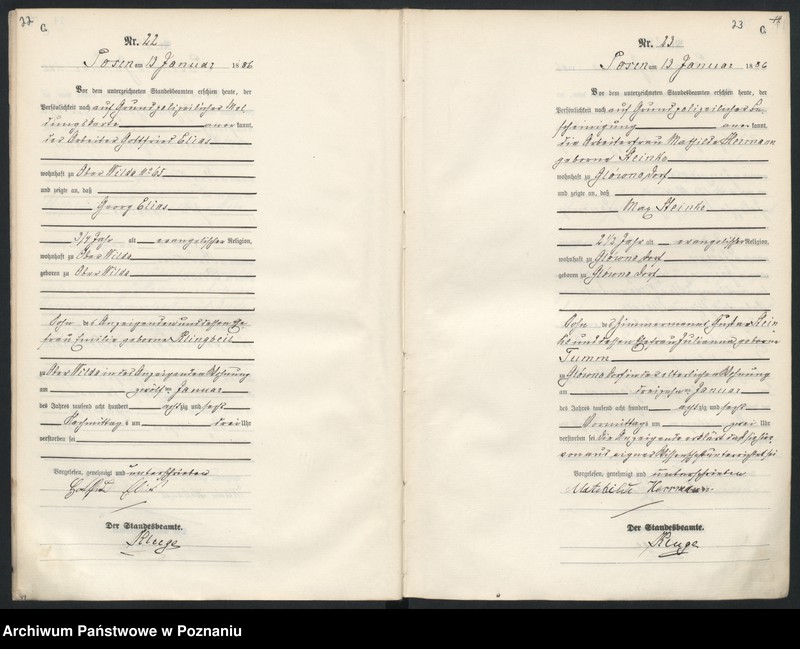 22
C.
Nr. 22
Posen am 13 Januar 1886
Vor dem unterzeichneten Standesbeamten erschien heute, der
Persönlichkeit nach auf Grund polizeilicher Mel
dungskarte anerkannt,
der Arbeiter Gottfried Elias
wohnhaft zu Ober Wilda No 65
und zeigte an, daß
Georg Elias
3/4 Jahr alt evangelischer Religion,
wohnhaft zu Ober Wilda
geboren zu Ober Wilda
Sohn des Anzeigenden und dessen Ehe
frau Emilie geborene Klingbeil
zu Ober Wilda in des Anzeigenden Wohnung
am zwölften Januar
des Jahres tausend acht hundert achtzig und sechs
Nachmittags um drei Uhr
verstorben sei
Vorgelesen, genehmigt und unterschrieben
Elias
Der Standesbeamte.
Kluge
23
C.
Nr. 23
Posen am 13 Januar 1886
Vor dem unterzeichneten Standesbeamten erschien heute, der
Persönlichkeit nach auf Grund polizeilicher Be-
scheinigung anerkannt,
die Arbeiterfrau Mathilde Herrmann
geborene Steinke
wohnhaft zu Glowno Dorf
und zeigte an, daß
Max Steinke
2 1/2 Jahr alt evangelischer Religion,
wohnhaft zu Glowno Dorf
geboren zu Glowno Dorf
Sohn des Zimmermanns Gustav Stein
ke und dessen Ehefrau Julianna geborene
Tumm
zu Glowno Dorf in der elterlichen Wohnung
am dreizehnten Januar
des Jahres tausend acht hundert achtzig und sechs
Vormittags um zwei Uhr
verstorben sei die Anzeigende erklärt daß sie hier
von aus eigener Wissenschaft unterrichtet sei
Vorgelesen, genehmigt und unterschrieben
Mathilde Herrmann
Der Standesbeamte.
Kluge
Archiwum Państwowe w Poznaniu